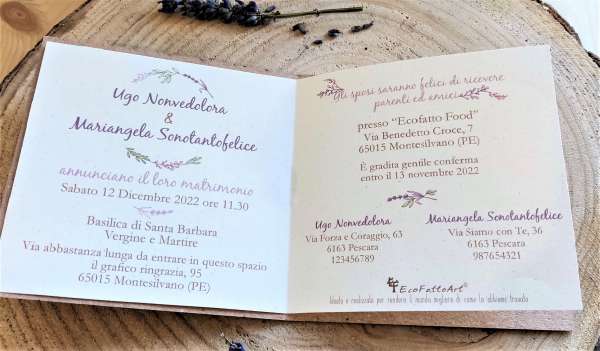 Ugo Nonvedolora
&
Mariangela Sonotantofelice
annunciano il loro matrimonio
Sabato 12 Dicembre 2022 ore 11.30
Basilica di Santa Barbara
Vergine e Martire
Via abbastanza lunga da entrare in questo spazio
il grafico ringrazia, 95
65015 Montesilvano (PE)
Gli sposi saranno felici di ricevere
parenti ed amici
presso “Ecofatto Food”
Via Benedetto Croce, 7
65015 Montesilvano (PE)
È gradita gentile conferma
entro il 13 novembre 2022
Ugo Nonvedolora
Via Forza e Coraggio, 63
6163 Pescara
123456789
Mariangela Sonotantofelice
Via Siamo con Te, 36
6163 Pescara
987654321
EcoFattoArt®
Ideato e realizzato per rendere il mondo migliore di come lo abbiamo trovato